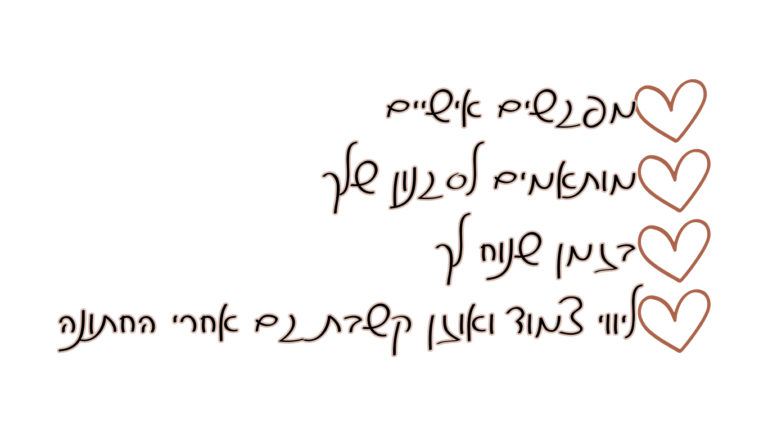 מפגשים אישיים
מותאמים לסגנון שלך
בזמן שנוח לך
ליווי צמוד ואוזן קשבת גם אחרי החתונה